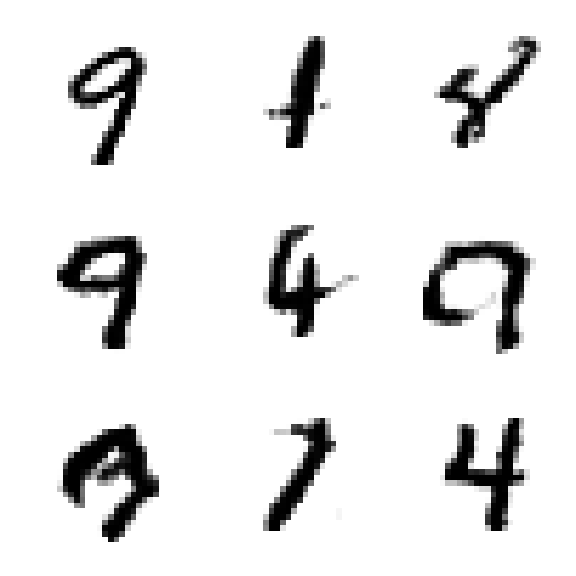 9 1 8
9 4 9
7 4